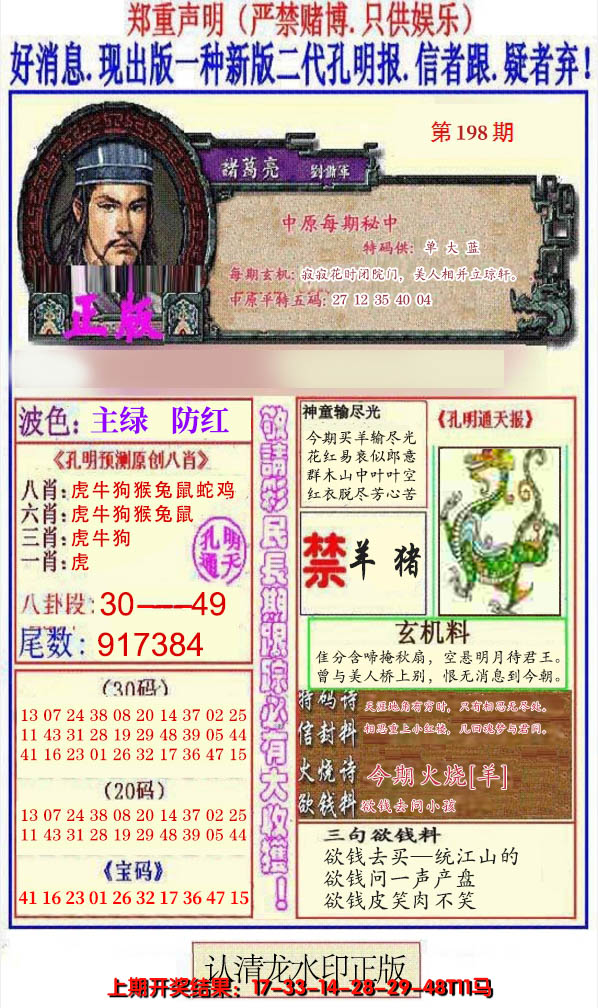 郑重声明（严禁赌博.只供娱乐）
好消息.现出版一种新版二代孔明报.信者跟.疑者弃!
第198期
諸葛亮 劉備軍
中原每期秘中
特码供：单大蓝
每期玄机：寂寂花时闭院门，美人相并立琼轩。
中原平特五码：27 12 35 40 04
正版
波色：主绿 防红
《孔明预测原创八肖》
八肖：虎牛狗猴兔鼠蛇鸡
六肖：虎牛狗猴兔鼠
三肖：虎牛狗
一肖：虎
孔明通天
八卦段：30——49
尾数：917384
（30码）
13 07 24 38 08 20 14 37 02 25
11 43 31 28 19 29 48 39 05 44
41 16 23 01 26 32 17 36 47 15
（20码）
13 07 24 38 08 20 14 37 02 25
11 43 31 28 19 29 48 39 05 44
《宝码》
41 16 23 01 26 32 17 36 47 15
敬請彩民長期跟踪必有大收獲！
神童输尽光
今期买羊输尽光
花红易衰似郎意
群木山中叶叶空
红衣脱尽芳心苦
《孔明通天报》
禁羊猪
玄机料
隹分含啼掩秋扇，空悬明月待君王。
曾与美人桥上别，恨无消息到今朝。
特码诗 天涯地角有穷时，只有相思无尽处。
信封料 相思重上小红楼，几回魂梦与君同。
火烧诗 今期火烧[羊]
欲钱料 欲钱去问小孩
三句欲钱料
欲钱去买—统江山的
欲钱问一声产盘
欲钱皮笑肉不笑
认清龙水印正版
上期开奖结果：17-33-14-28-29-48T11马